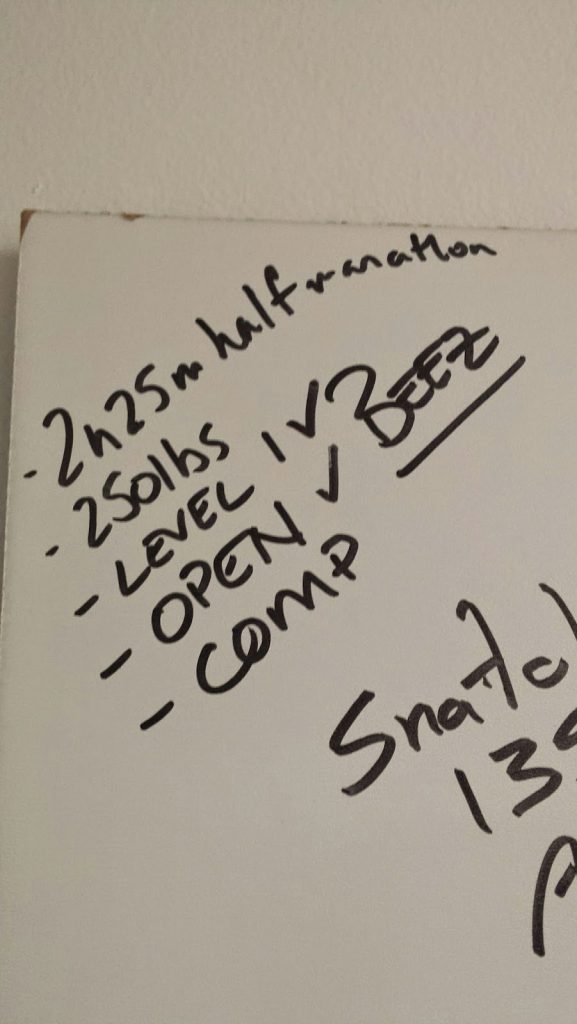 - 2h25m half marathon
- 250lbs
- LEVEL 1 ✓ BEEZ
- OPEN ✓
- COMP
Snatch
135